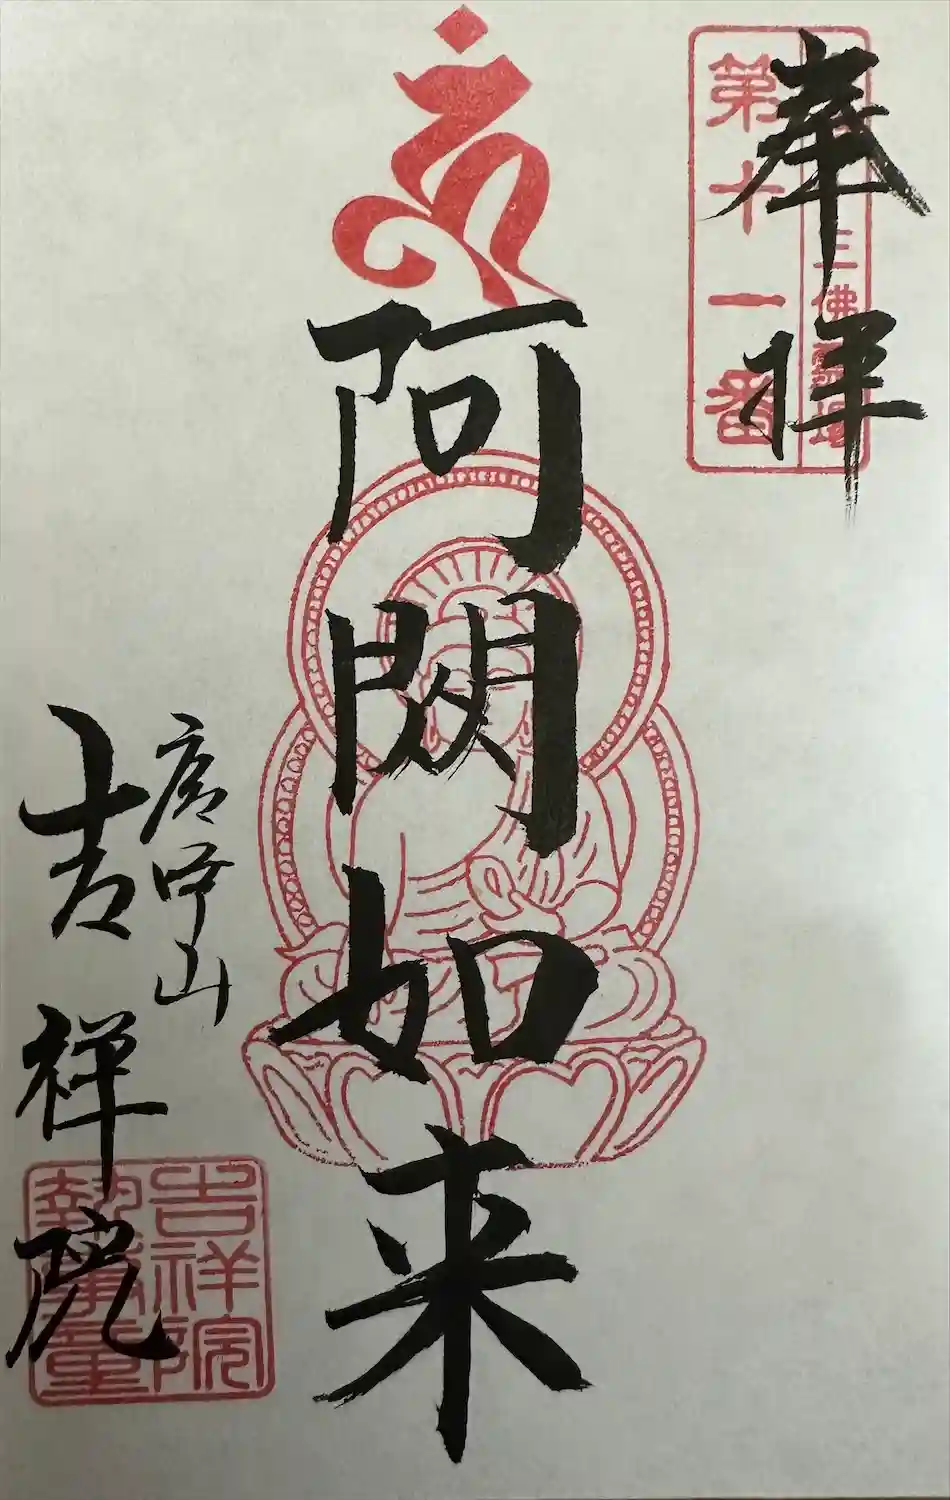 奉拝
三佛霊場
第十一番
阿閦如来
山
吉祥院
吉祥院
執事章